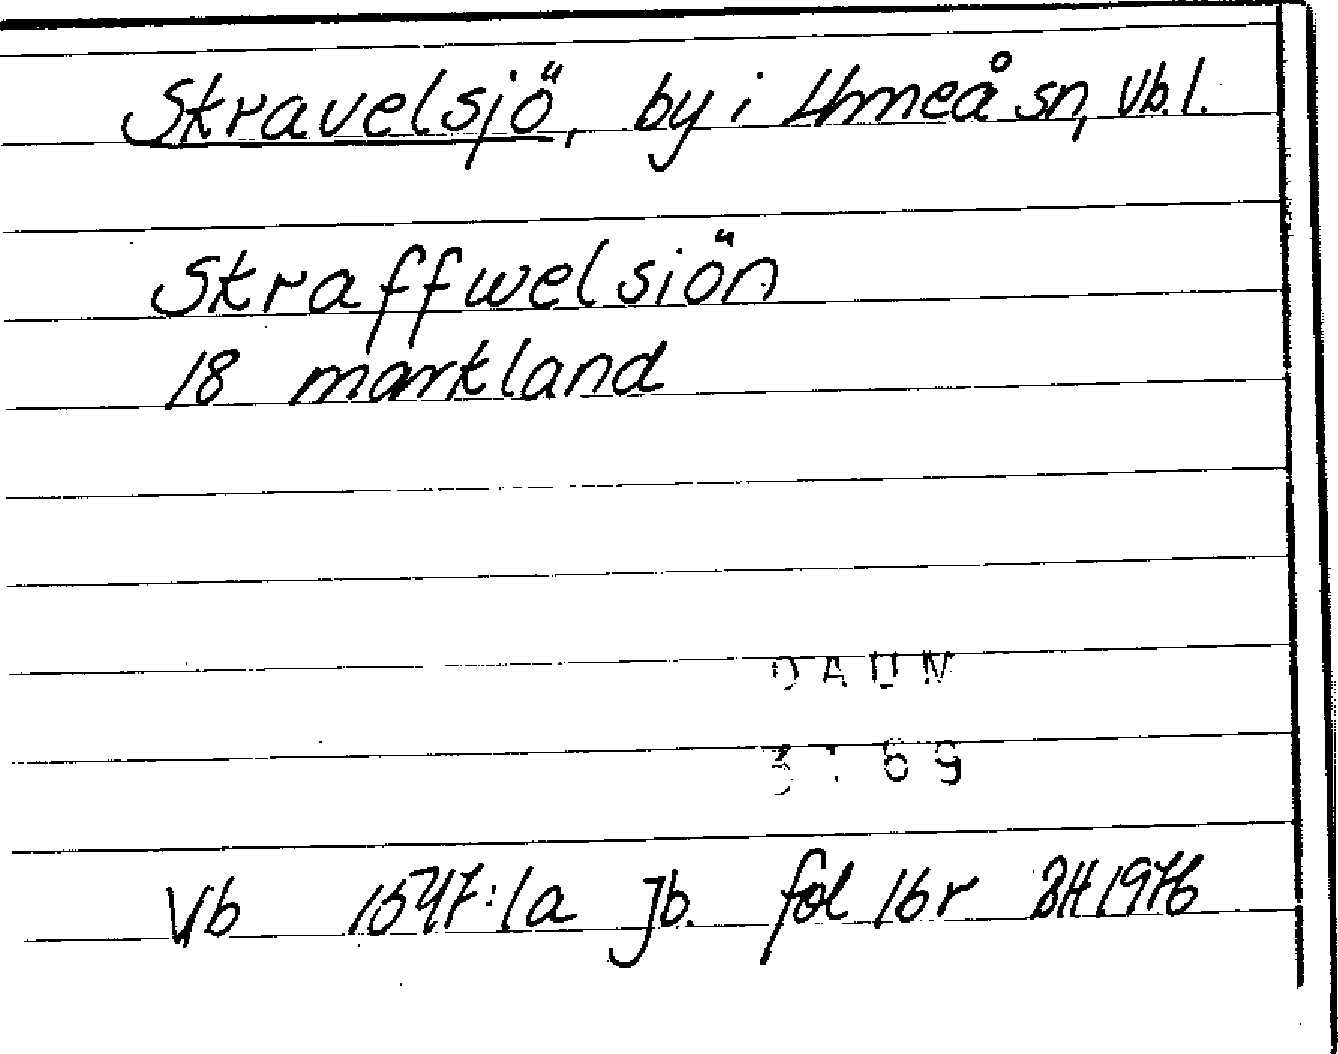 Stravelsjö, by i Umeå sn, Vb.l.
Straffwelsiön
18 markland
DAUM
Vb 1547:1a Jb. fol 16r BH 1976